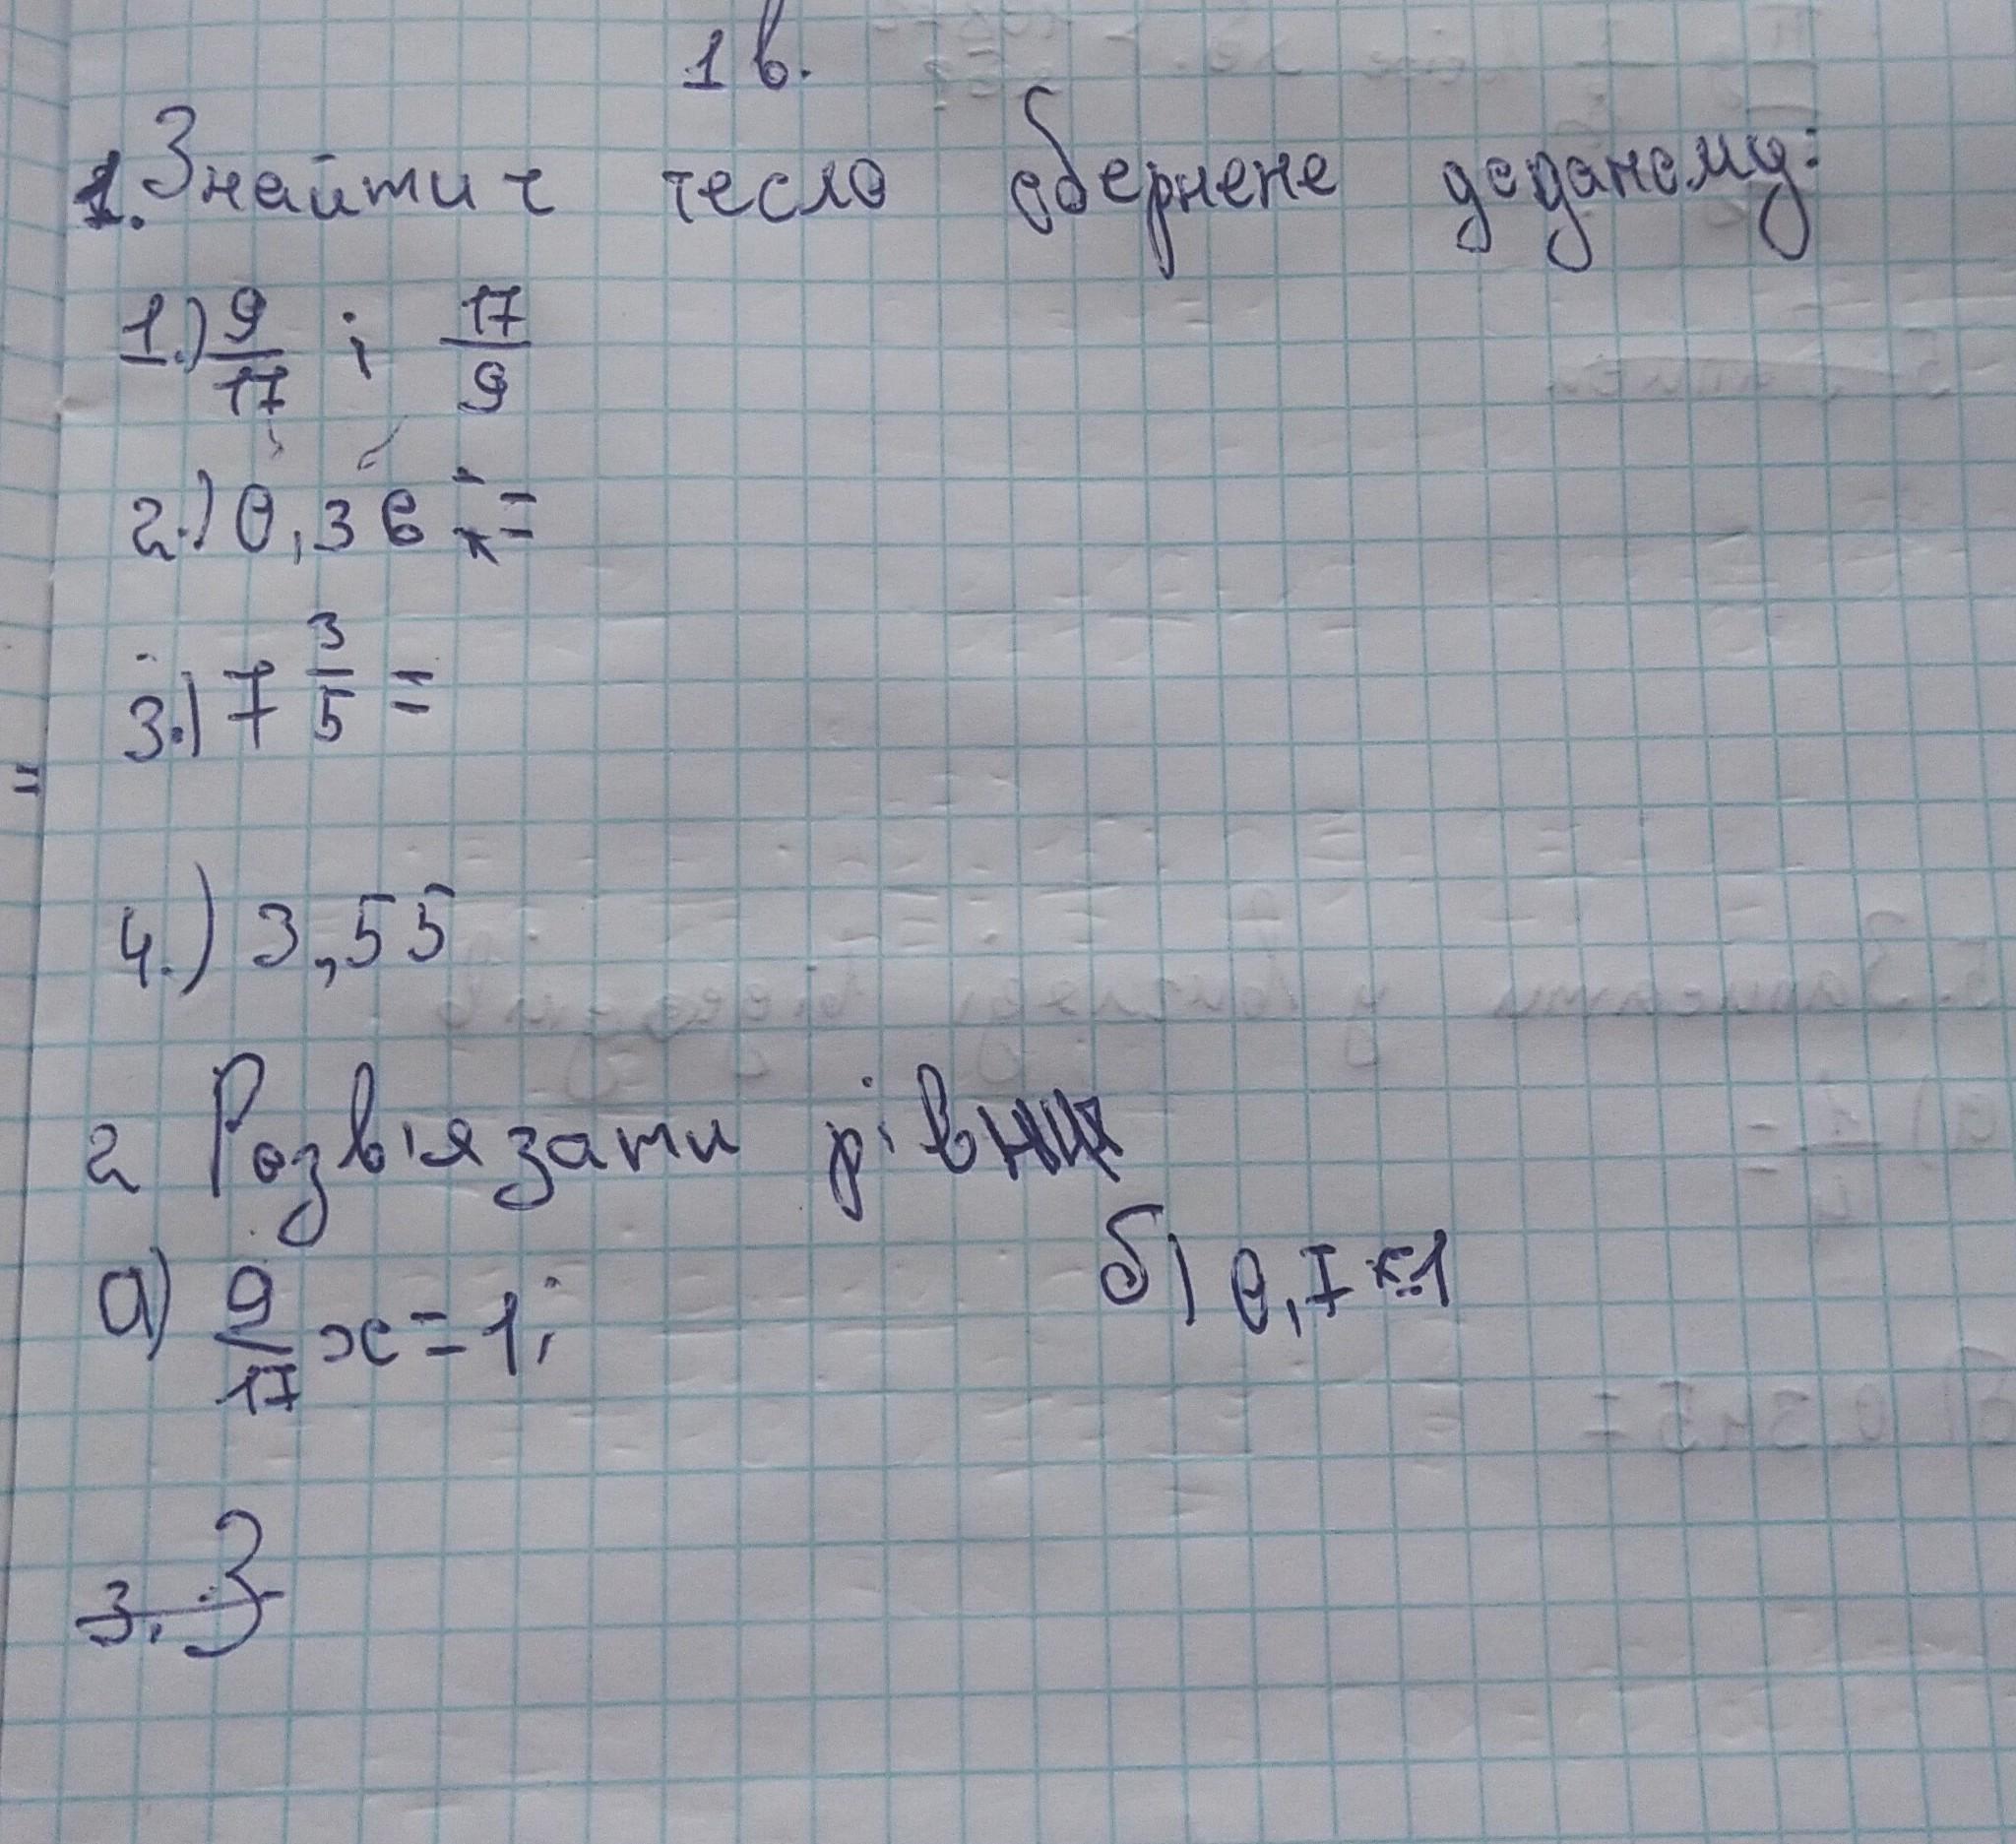 1 в.
1. Знайти ч чесло обернене доданому:
1.) 9/17 і 17/9
2.) 0,36 =
3.) 7 3/5 =
=
4.) 3,55
2 Розв'язати рівня
а) 9/17 x = 1; б) 0,7x=1
3. З